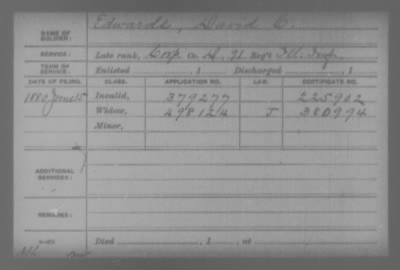 NAME OF SOLDIER: Edwards, David C.
SERVICE: Late rank, Corp Co. D, 91 Reg't Ill. Inf.
TERM OF SERVICE: Enlisted , 1 Discharged , 1
DATE OF FILING. CLASS. APPLICATION NO. LAW. CERTIFICATE NO.
1880 June 15 Invalid, 379277 225902
Widow, 498124 J 380994
Minor,
ADDITIONAL SERVICES:
REMARKS:
Died , 1 , at